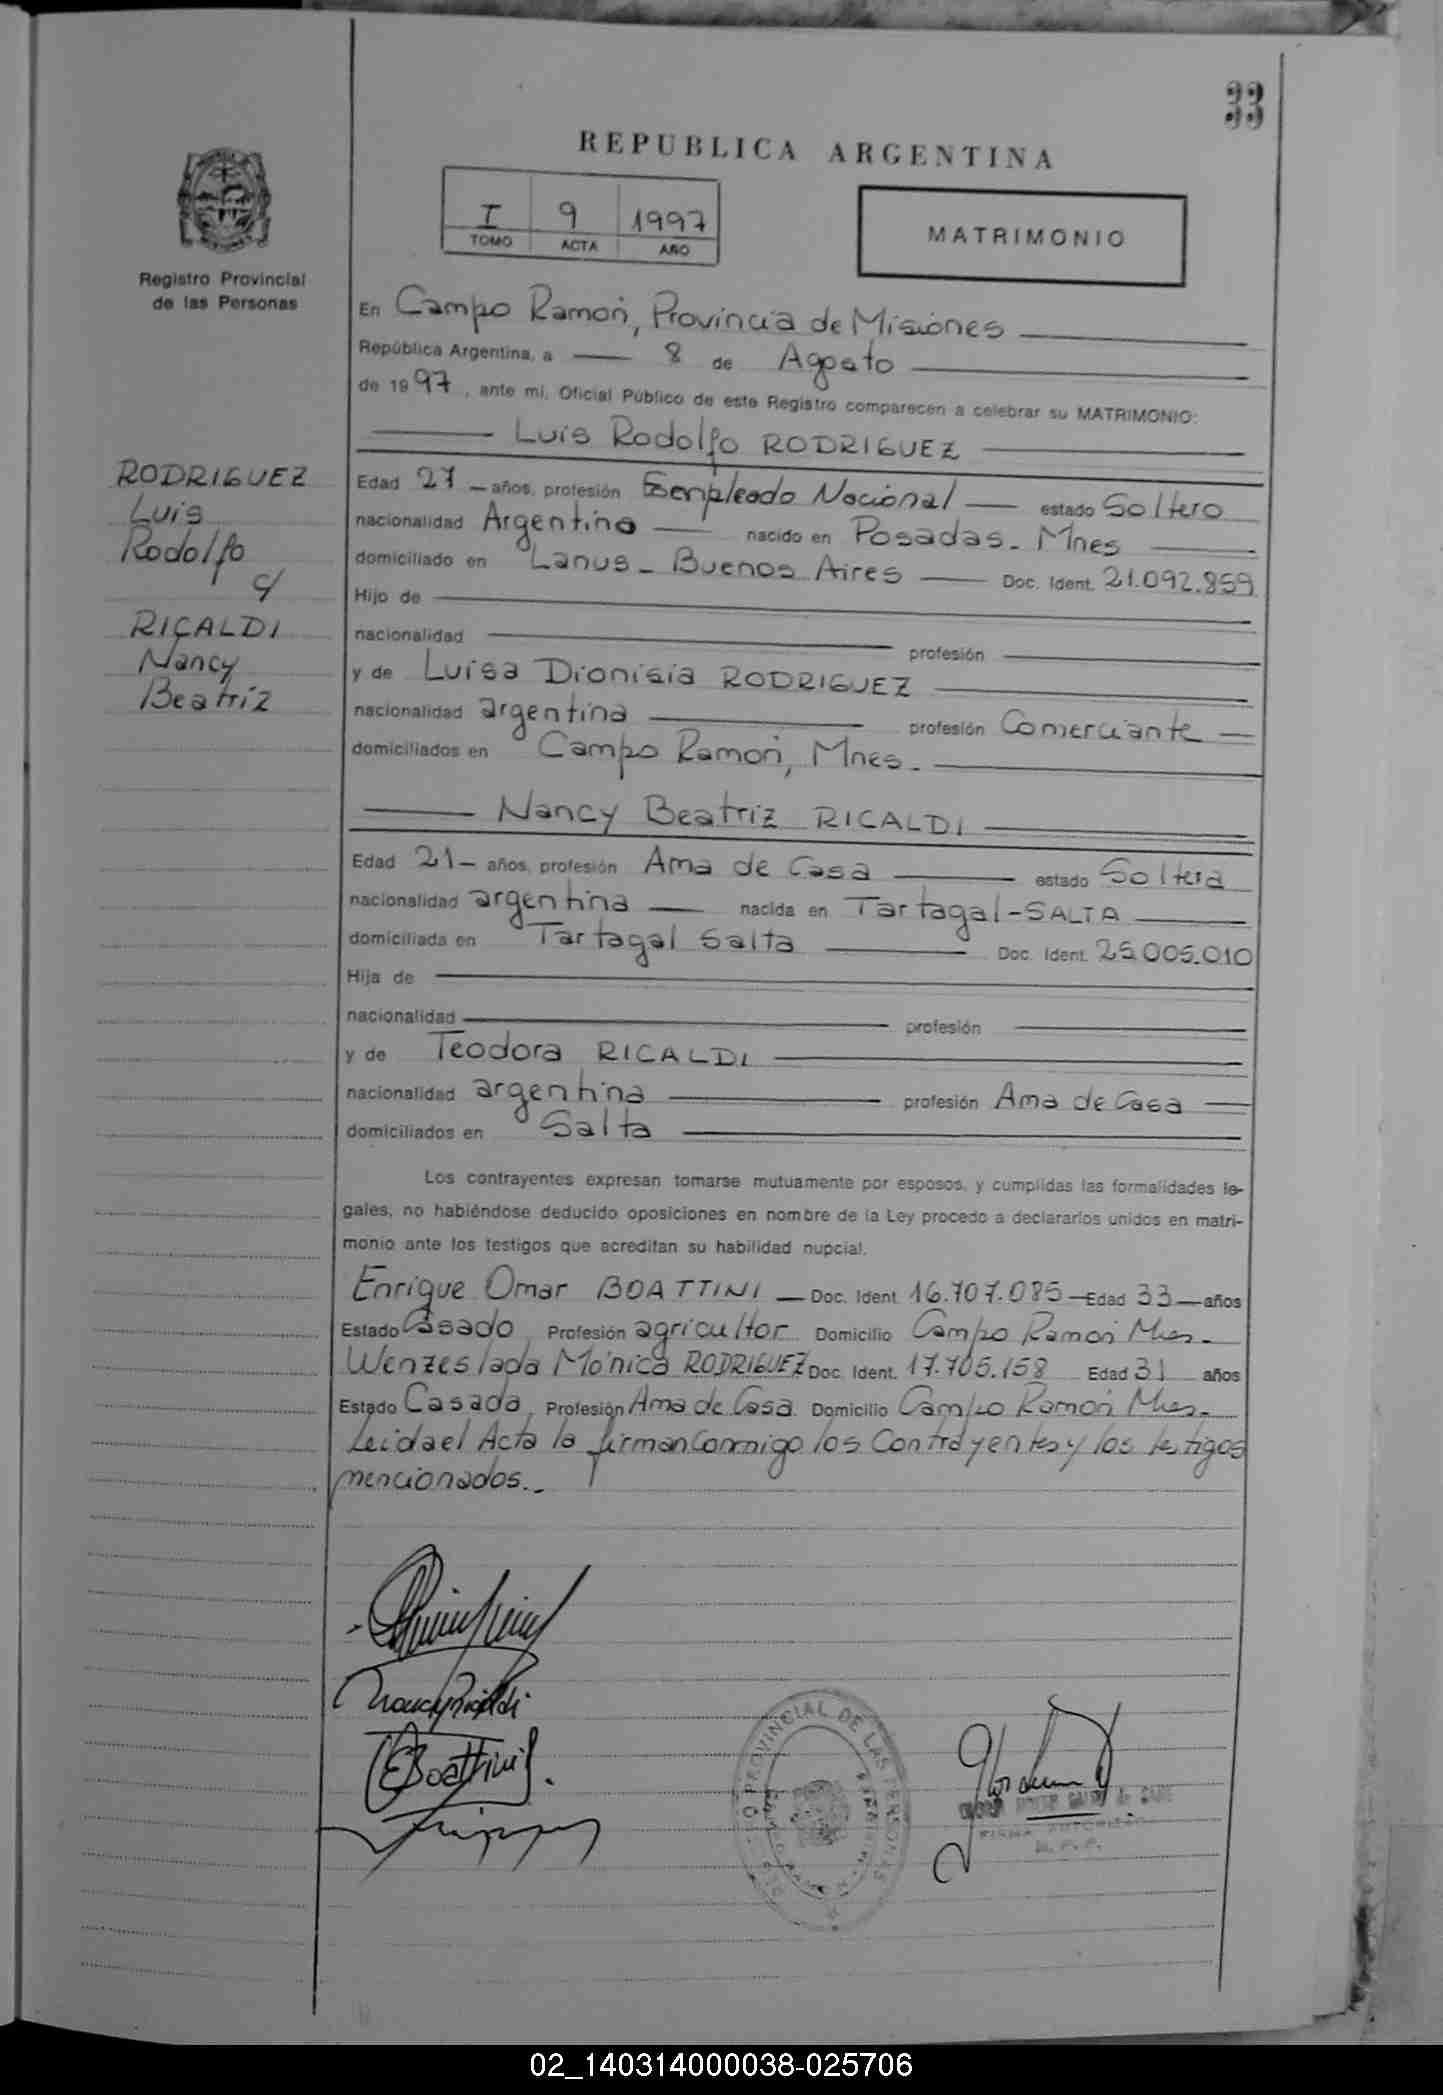 33
REPUBLICA ARGENTINA
I 9 1997
TOMO ACTA AÑO
MATRIMONIO
Registro Provincial
de las Personas
RODRIGUEZ
Luis
Rodolfo
c/
RICALDI
Nancy
Beatriz
En Campo Ramón, Provincia de Misiones
República Argentina, a 8 de Agosto
de 1997, ante mi, Oficial Público de este Registro comparecen a celebrar su MATRIMONIO:
Luis Rodolfo RODRIGUEZ
Edad 27 años, profesión Empleado Nacional estado Soltero
nacionalidad Argentina nacido en Posadas - Mnes
domiciliado en Lanus - Buenos Aires Doc. Ident. 21.092.859
Hijo de
nacionalidad profesión
y de Luisa Dionisia RODRIGUEZ
nacionalidad argentina profesión Comerciante
domiciliados en Campo Ramón, Mnes.
Nancy Beatriz RICALDI
Edad 21 años, profesión Ama de Casa estado Soltera
nacionalidad argentina nacida en Tartagal-SALTA
domiciliada en Tartagal Salta Doc. Ident. 25.005.010
Hija de
nacionalidad profesión
y de Teodora RICALDI
nacionalidad argentina profesión Ama de Casa
domiciliados en Salta
Los contrayentes expresan tomarse mutuamente por esposos, y cumplidas las formalidades le-
gales, no habiéndose deducido oposiciones en nombre de la Ley procedo a declararlos unidos en matri-
monio ante los testigos que acreditan su habilidad nupcial.
Enrique Omar BOATTINI Doc. Ident. 16.707.085 Edad 33 años
Estado Casado Profesión agricultor Domicilio Campo Ramón Mnes.
Wenzeslada Mónica RODRIGUEZ Doc. Ident. 17.705.158 Edad 31 años
Estado Casada Profesión Ama de Casa Domicilio Campo Ramón Mnes.
Leida el Acta la firman Conmigo los Contrayentes y los testigos
mencionados.
Nancy Ricaldi
EBoattini
PROVINCIAL DE LAS PERSONAS
FIRMA AUTORIZADA
R. P. P.
02_140314000038-025706